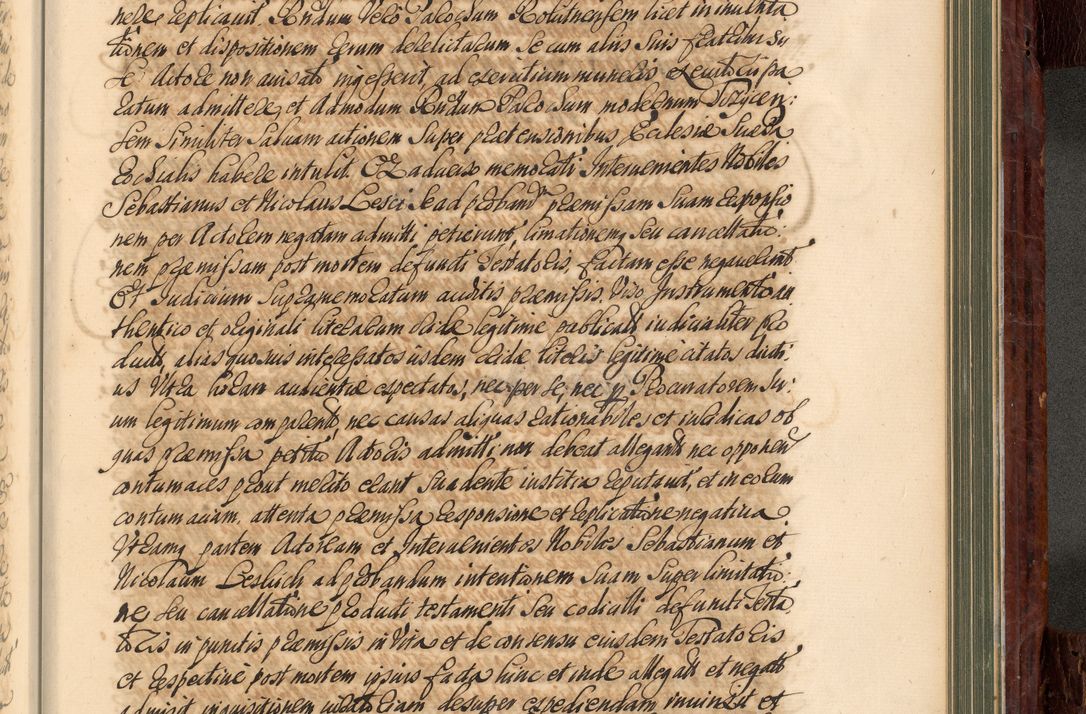 nere replicavit. Rndum Vero Parochum Rohitnensem licet in invita
tionem et dispositionem rerum derelictarum se cum aliis suis fratribus
se Actore non avisato ingesserit, ad exercitium muneris executoris pa
ratum admittere, et Admodum Rndum Parochum modernum
sem similiter salvam actionem super praetensionibus Ecclesiae suae Pa
rochialis habere intulit. Et adverso memorati Intervenientes Nobiles
Sebastianus et Nicolaus Lesci se ad proband. praemissam suam responsio
nem per Actorem negatam admitti petierunt, limationem seu cancellatio:
nem praemissam post mortem defuncti Testatoris, factam esse negaverunt
Et Judicium supramemoratum auditis praemissis. Viso Instrumento au
thentico et originali literarum legitime publicati judicialiter pro
ducti, alias quosvis interessatos iisdem literis legitime citatos
us Vtra horam audientiae expectatos, nec per se, nec p Procuratorem su:
um legitimum comparent. nec causas aliquas rationabiles et juridicas ob
quas praemissa petita Actoris admitti non debeat allegant. nec opponen
contumaces prout merito erant suadente justitia reputavit, et in eoram
contumaciam, attenta praemissa responsione et replicatione negativa
Vtramq partem Actoream et Intervenientes Nobiles Sebastianum et
Nicolaum Leskich ad probandum intentionem suam super limitatio:
ne seu cancellatione producti testamenti seu codicilli defuncti Testa
toris in punctis praemissis in vita et de consensu eiusdem Testatoris
et respective post mortem ipsius facta hinc et inde allegat. et negat.
admisit inquisitionem juratoriam desuper expediendam injunxit et